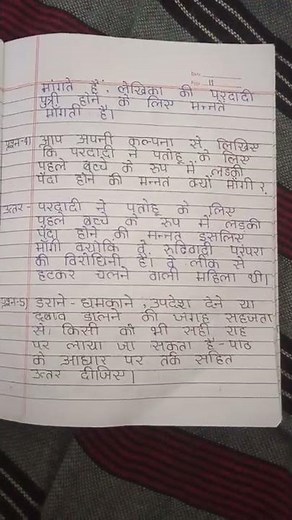 Date
Page 11
मांगते हैं, लेखिका की परदादी
पुत्री होने के लिए मन्नत
माँगती हैं।
प्रश्न-4) आप अपनी कल्पना से लिखिए
कि परदादी ने पतोहू के लिए
पहले बच्चे के रूप में लडकी
पैदा होने की मन्नत क्यों माँगी?
उत्तर - परदादी ने पतोहू के लिए
पहले बच्चे के रूप में लडकी
पैदा होने की मन्नत इसलिए
माँगी क्योंकि वे, रूढिवादी परंपरा
की विरोधिनी हैं। वे लीक से
हटकर चलने वाली महिला थीं।
प्रश्न-5) डराने - धमकाने, उपदेश देने या
दबाव डालने की जगह सहजता
से किसी को भी सही राह
पर लाया जा सकता है - पाठ
के आधार पर तर्क सहित
उत्तर दीजिए।